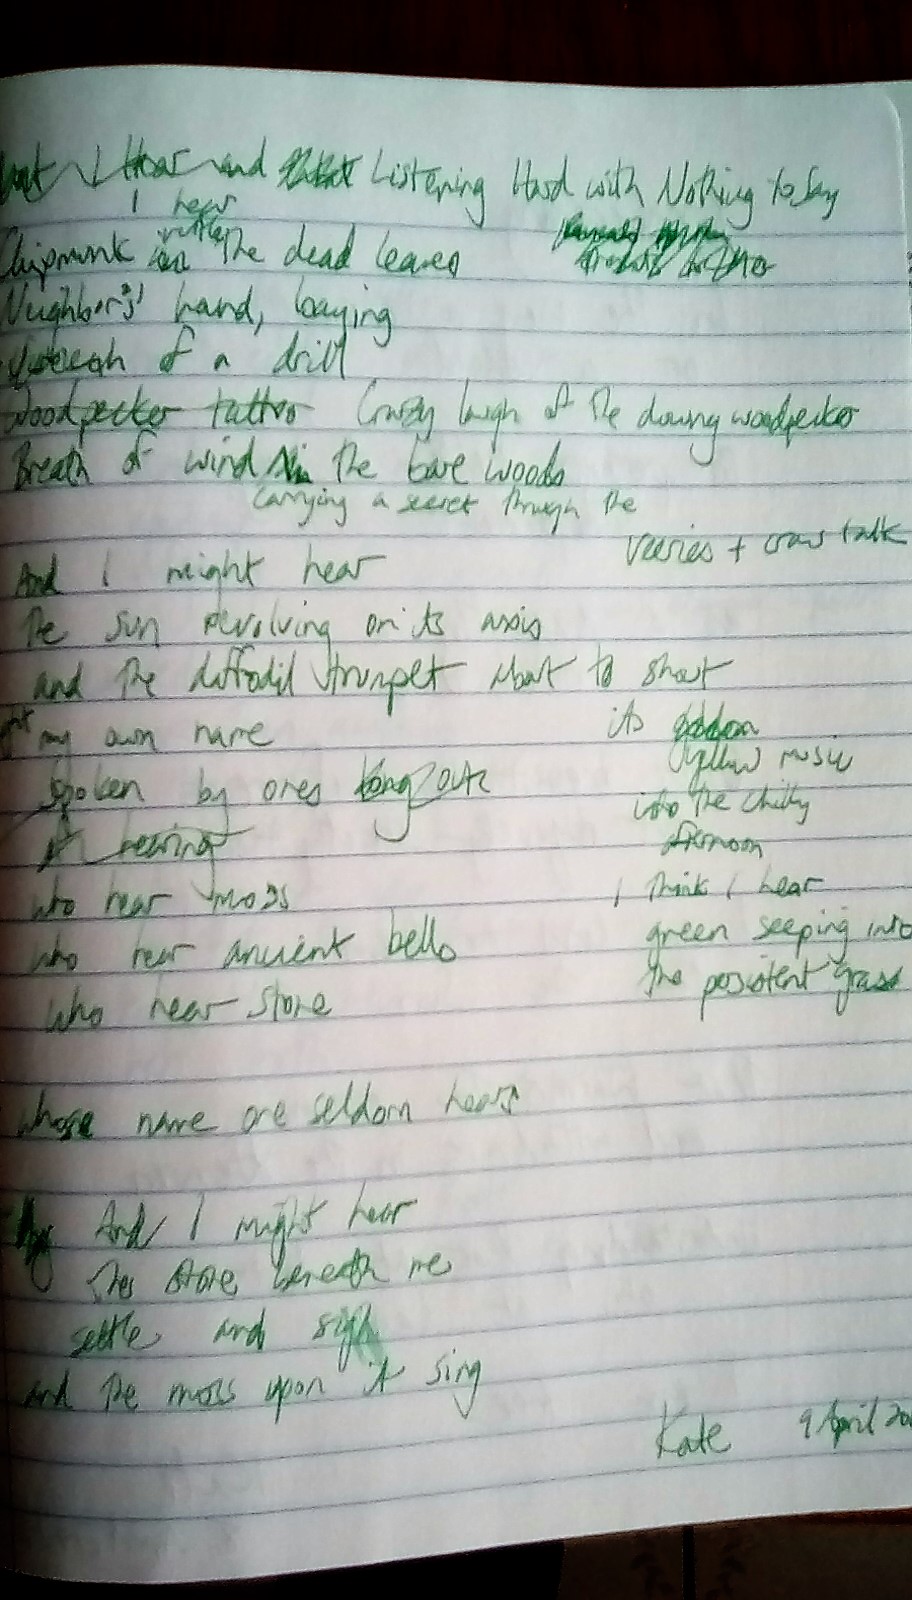 I Hear and Listening Hard with Nothing to Say
I hear
rustles
Chipmunk in the dead leaves
Neighbor's hand, baying
of a drill
Woodpecker tattoo Crazy laugh of the downy woodpecker
Breath of wind in the bare woods
carrying a secret through the
veeries + crow talk
And I might hear
the sun revolving on its axis
and the daffodil trumpet about to shout
its golden
yellow music
into the chilly
afternoon
my own name
spoken by ones long out
of hearing
who hear moss
who hear ancient bells
who hear stone
I think I hear
green seeping into
the persistent grass
whose name are seldom hears
And I might hear
the stone beneath me
settle and sigh
and the moss upon it sing
Kate 9 April